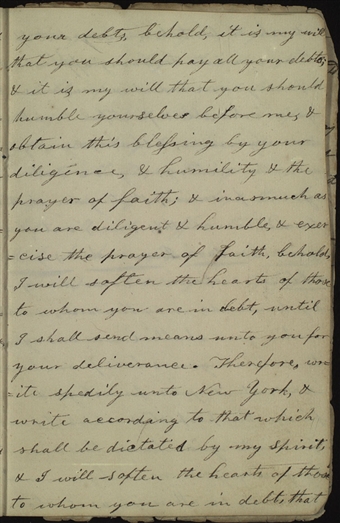 your debts, behold, it is my will
that you should pay all your debts,
& it is my will that you should
humble yourselves before me, &
obtain this blessing by your
diligence, & humility & the
prayer of faith; & inasmuch as
you are diligent & humble, & exer
=cise the prayer of faith, behold,
I will soften the hearts of those
to whom you are in debt, until
I shall send means unto you for
your deliverance. Therefore, wr
=ite spedily unto New York, &
write according to that which
shall be dictated by my spirit,
& I will soften the hearts of those
to whom you are in debt, that